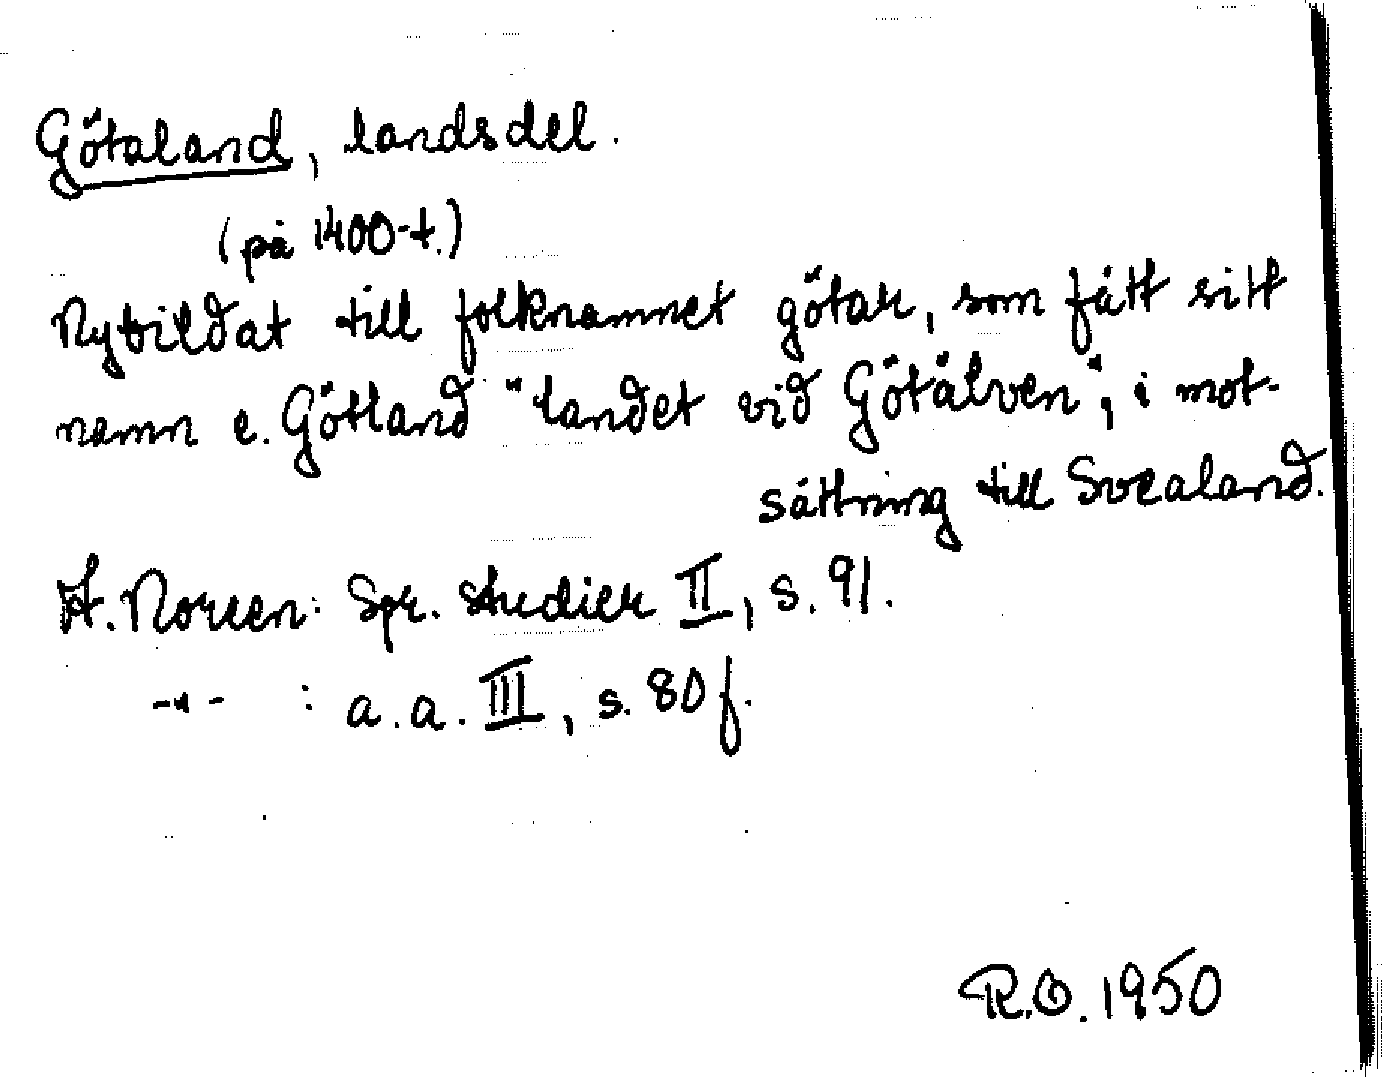 Götaland, landsdel.
(på 1400-t.)
Nybildat till folknamnet götar, som fått sitt
namn e. Götland "landet vid Götälven", i mot-
sättning till Svealand.
A. Noreen: Spr. studier II, s. 91.
-"- : a.a. III, s. 80 f.
R.O. 1950